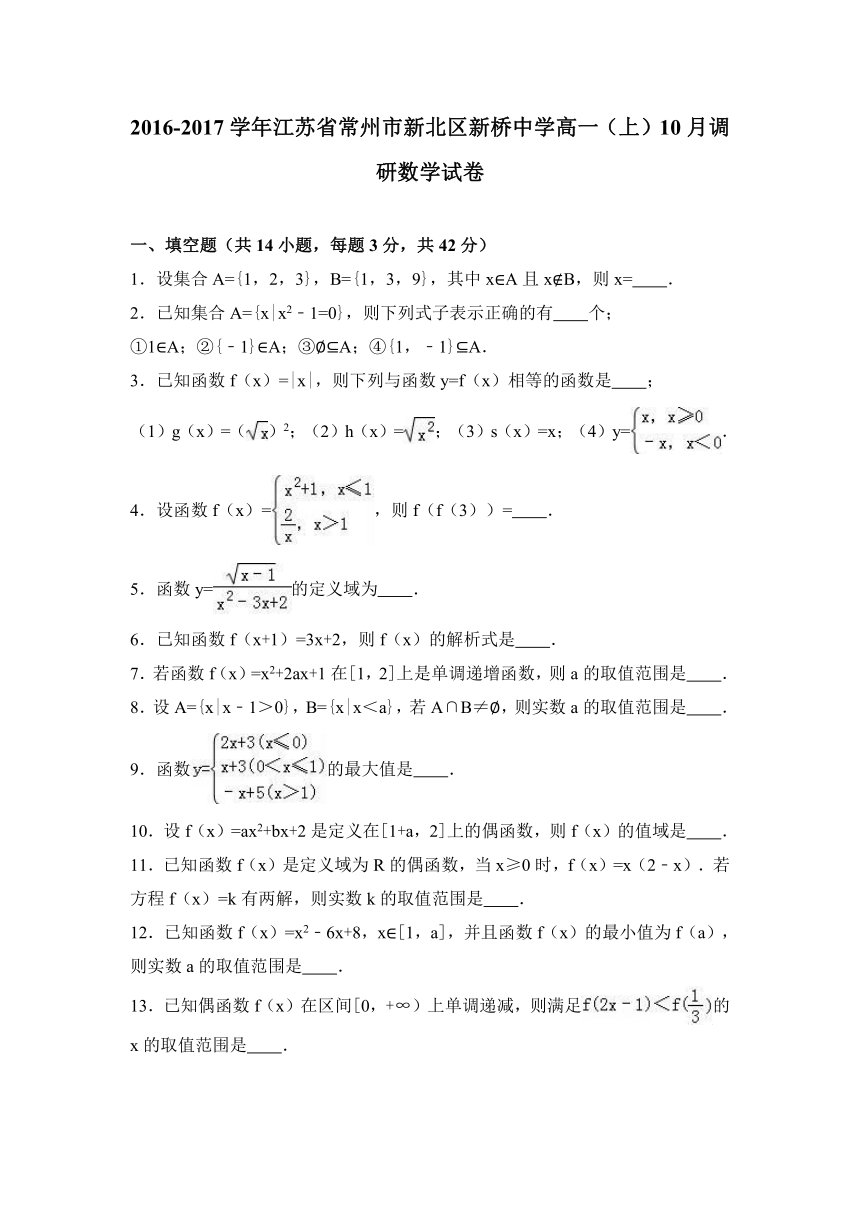 2016-2017 学年江苏省常州市新北区新桥中学高一（上）10 月调
研数学试卷
一、填空题（共 14 小题，每题 3 分，共 42 分）
1．设集合 A={1，2，3}，B={1，3，9}，其中 x∈A 且 x∉B，则 x=____．
2．已知集合 A={x|x²﹣1=0}，则下列式子表示正确的有____个；
①1∈A；②{﹣1}∈A；③∅⊆A；④{1，﹣1}⊆A．
3．已知函数 f（x）=|x|，则下列与函数 y=f（x）相等的函数是____；
（1）g（x）=（√x）²；（2）h（x）=√x²；（3）s（x）=x；（4）y={x，x≥0 ﹣x，x<0．
4．设函数 f（x）={x²+1，x≤1 2/x，x>1，则 f（f（3））=____．
5．函数 y=√(x﹣1)/(x²﹣3x+2)的定义域为____．
6．已知函数 f（x+1）=3x+2，则 f（x）的解析式是____．
7．若函数 f（x）=x²+2ax+1 在[1，2]上是单调递增函数，则 a 的取值范围是____．
8．设 A={x|x﹣1>0}，B={x|x<a}，若 A∩B≠∅，则实数 a 的取值范围是____．
9．函数y={2x+3(x≤0) x+3(0<x≤1) ﹣x+5(x>1)的最大值是____．
10．设 f（x）=ax²+bx+2 是定义在[1+a，2]上的偶函数，则 f（x）的值域是____．
11．已知函数 f（x）是定义域为 R 的偶函数，当 x≥0 时，f（x）=x（2﹣x）．若
方程 f（x）=k 有两解，则实数 k 的取值范围是____．
12．已知函数 f（x）=x²﹣6x+8，x∈[1，a]，并且函数 f（x）的最小值为 f（a），
则实数 a 的取值范围是____．
13．已知偶函数 f（x）在区间[0，+∞）上单调递减，则满足f(2x﹣1)<f(1/3)的
x 的取值范围是____．